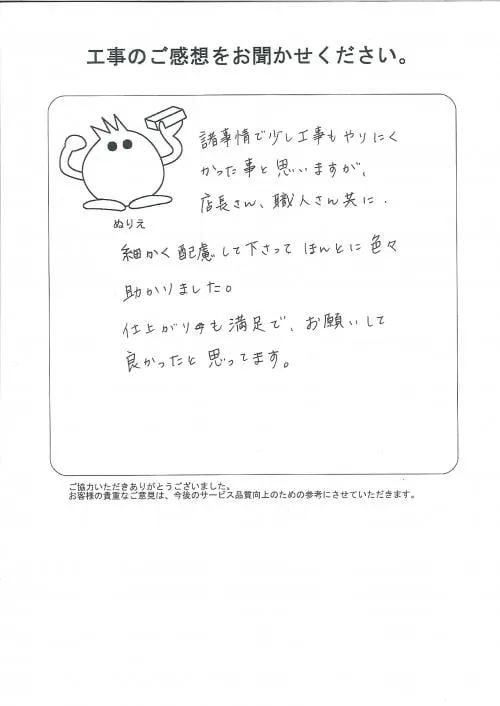 工事のご感想をお聞かせください。
諸事情で少し工事もやりにく
かった事と思いますが、
店長さん、職人さん共に、
ぬりえ
細かく配慮して下さって ほんとに色々
助かりました。
仕上がりも満足で、お願いして
良かったと思ってます。
ご協力いただきありがとうございました。
お客様の貴重なご意見は、今後のサービス品質向上のための参考にさせていただきます。